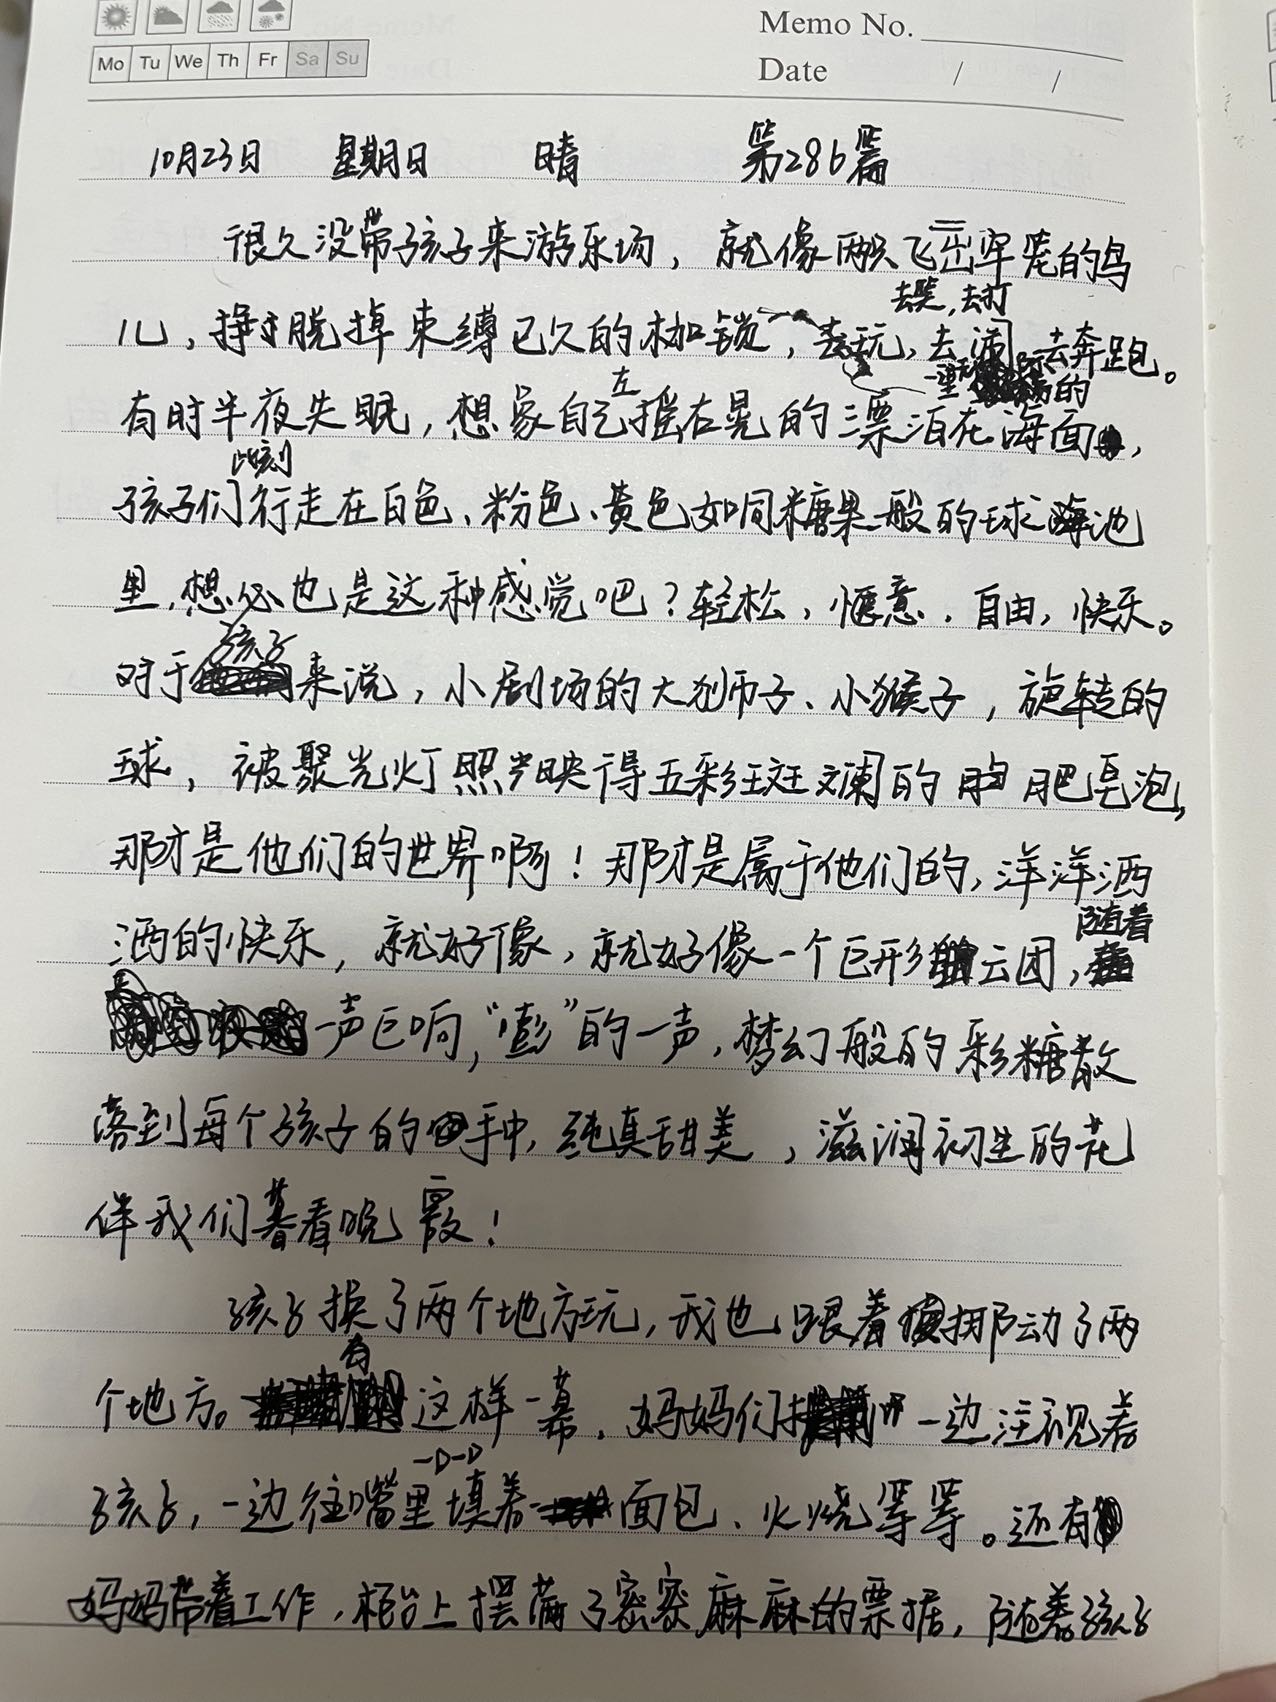 Memo No.
Mo Tu We Th Fr Sa Su
Date / /
10月23日 星期日 晴 第286篇
很久没带孩子来游乐场，就像两只飞出牢笼的鸟
去哭，去打
儿，挣脱掉束缚已久的枷锁，去玩，去闹，去奔跑。
一望无际的
左
有时半夜失眠，想象自己摇右晃的漂泊在海面，
此刻
孩子们行走在白色、粉色、黄色如同糖果一般的球池
里，想必也是这种感觉吧？轻松，惬意，自由，快乐。
孩子
对于来说，小剧场的大狮子、小猴子，旋转的
球，被聚光灯照映得五彩斑斓的肥皂泡，
那才是他们的世界啊！那才是属于他们的，洋洋洒
洒的快乐，就好像，就好像一个巨形云团，
随着
一声巨响，“嘭”的一声，梦幻般的彩糖散
落到每个孩子的手中，纯真甜美，滋润初生的花
伴我们暮看晚霞！
孩子换了两个地方玩，我也跟着挪动了两
有
个地方。这样一幕，妈妈们一边注视着
一口一口
孩子，一边往嘴里填着面包、火烧等等。还有
妈妈带着工作，柜台上摆满了密密麻麻的票据，随着孩子